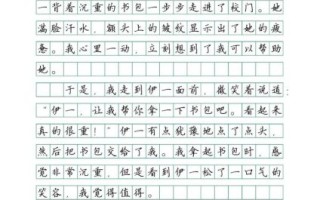 一背着沉重的书包一步步走进了校门。她
满脸汗水，额头上的皱纹显示出了她的疲
惫。我心里一动，立刻想到了我可以帮助
她。
于是，我走到伊一面前，微笑着说道：
“伊一，让我帮你拿一下书包吧。看起来
真的很重！”伊一有点犹豫地点了点头，
然后把书包交给了我。我拿起书包时，感
觉非常沉重，但是看到伊一松了一口气的
笑容，我觉得值得。